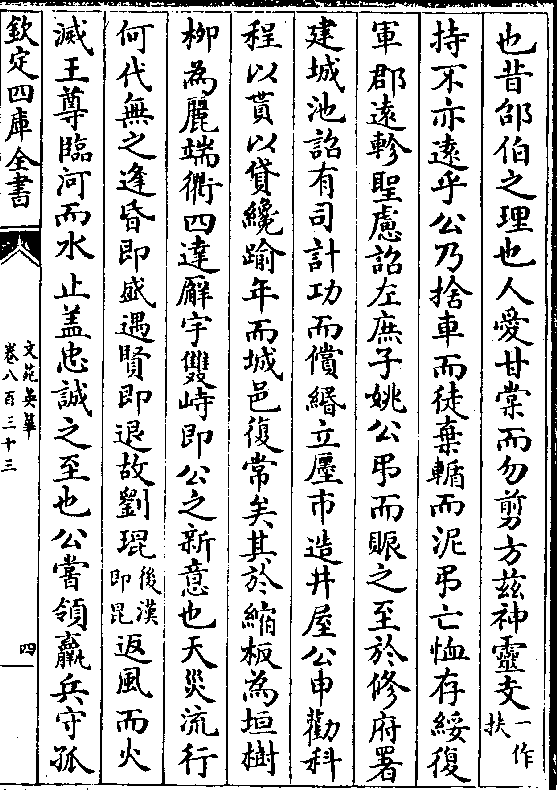 也昔邵伯之理也人愛甘棠而勿剪方茲神靈支一作扶
持不亦遠乎公乃捨車而徒棄輴而泥弔亡恤存綏復
軍郡遠軫聖慮詔左庶子姚公弔而賑之至於修府署
建城池詔有司計功而償緡立廛市造井屋公申勸科
程以貰以貸纔踰年而城邑復常矣其於縮板為垣樹
柳為麗端衢四達廨宇雙峙即公之新意也天災流行
何代無之逢昏即盛遇賢即退故劉琨後漢即昆返風而火
滅王尊臨河而水止盖忠誠之至也公嘗領羸兵守孤
欽定四庫全書
文苑英華
卷八百三十三
四